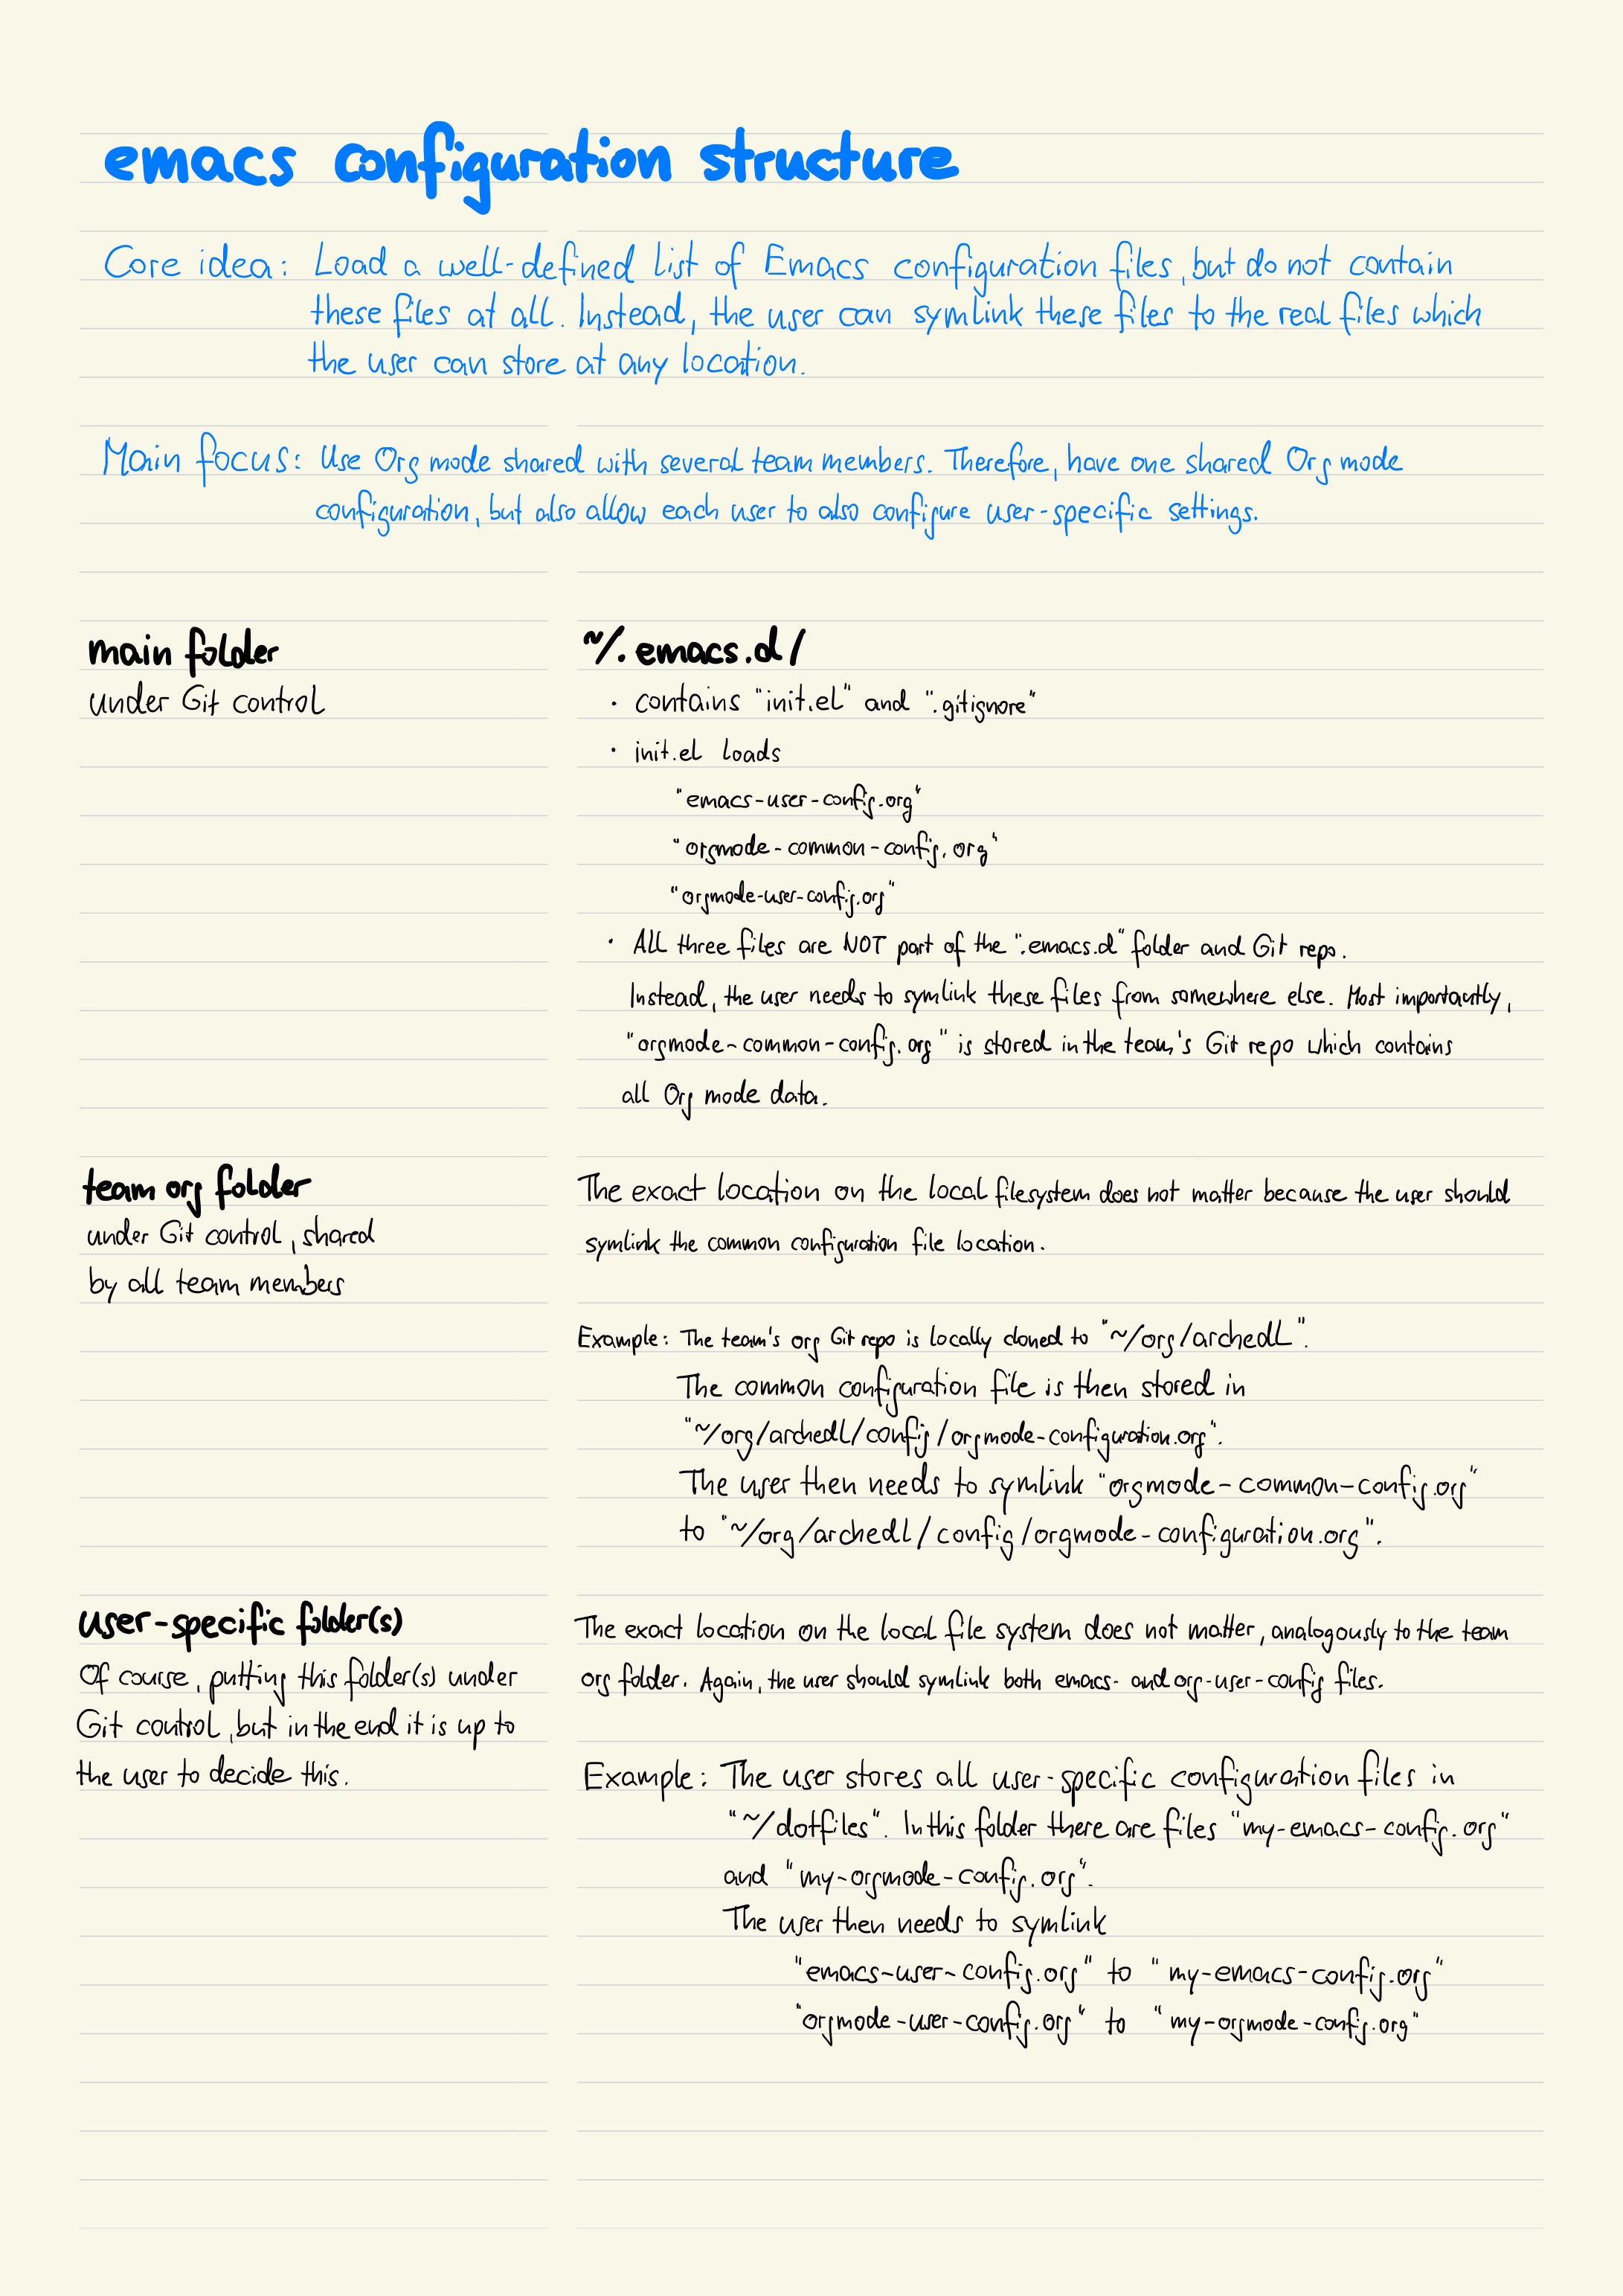 emacs configuration structure
Core idea: Load a well-defined list of Emacs configuration files, but do not contain
these files at all. Instead, the user can symlink these files to the real files which
the user can store at any location.
Main focus: Use Org mode shared with several team members. Therefore, have one shared Org mode
configuration, but also allow each user to also configure user-specific settings.
main folder
under Git control
~/.emacs.d/
· contains "init.el" and ".gitignore"
· init.el loads
"emacs-user-config.org"
"orgmode-common-config.org"
"orgmode-user-config.org"
· All three files are NOT part of the ".emacs.d" folder and Git repo.
Instead, the user needs to symlink these files from somewhere else. Most importantly,
"orgmode-common-config.org" is stored in the team's Git repo which contains
all Org mode data.
team org folder
under Git control, shared
by all team members
The exact location on the local filesystem does not matter because the user should
symlink the common configuration file location.
Example: The team's org Git repo is locally cloned to "~/org/archedl".
The common configuration file is then stored in
"~/org/archedl/config/orgmode-configuration.org".
The user then needs to symlink "orgmode-common-config.org"
to "~/org/archedl/config/orgmode-configuration.org".
user-specific folder(s)
Of course, putting this folder(s) under
Git control, but in the end it is up to
the user to decide this.
The exact location on the local file system does not matter, analogously to the team
org folder. Again, the user should symlink both emacs- and org-user-config files.
Example: The user stores all user-specific configuration files in
"~/dotfiles". In this folder there are files "my-emacs-config.org"
and "my-orgmode-config.org".
The user then needs to symlink
"emacs-user-config.org" to "my-emacs-config.org"
"orgmode-user-config.org" to "my-orgmode-config.org"